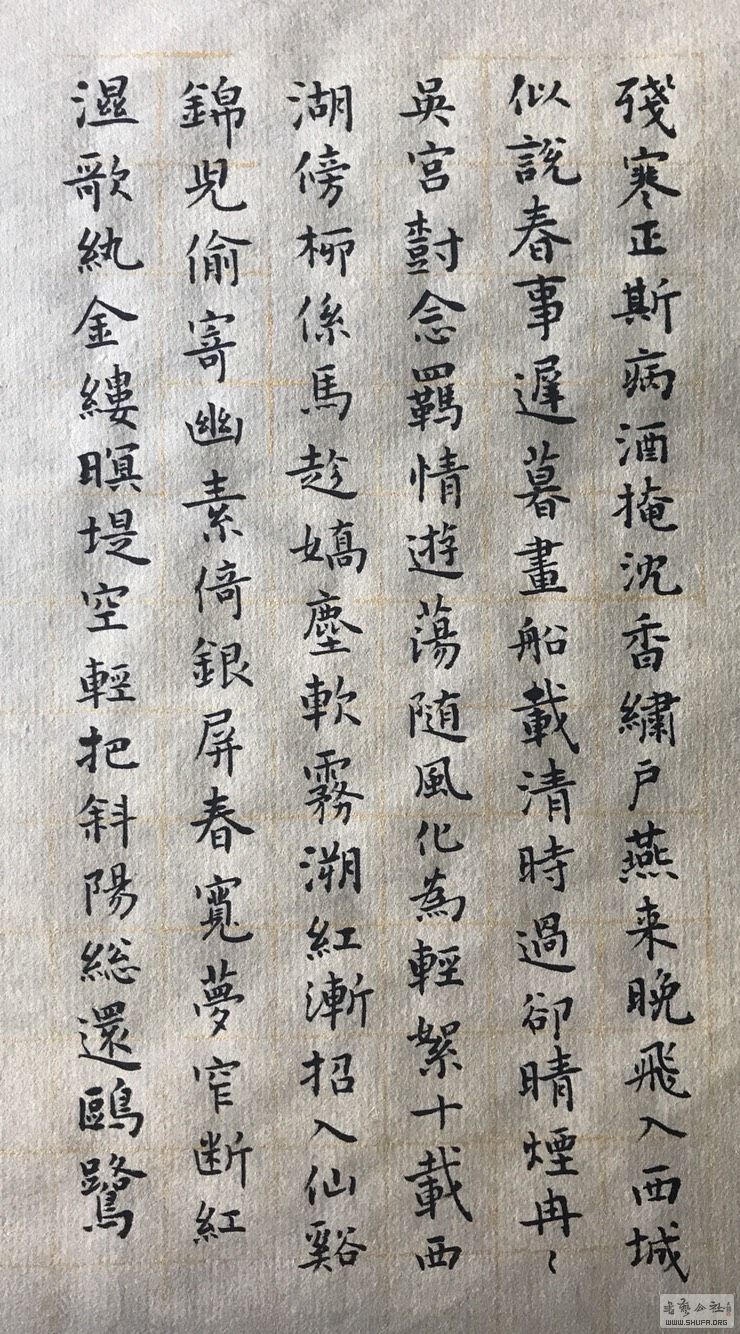 殘寒正斯病酒掩沈香繡戶燕来晚飛入西城
似説春事遲暮畫船載清時過卻晴煙冉〻
吳宮尌念羈情遊蕩随風化為輕絮十載西
湖傍柳係馬趁嬌塵軟霧溯紅漸招入仙谿
錦兒偷寄幽素倚銀屏春寬夢窄断紅
濕歌紈金縷暝堤空輕把斜陽総還鷗鷺
WWW.SHUFA.ORG